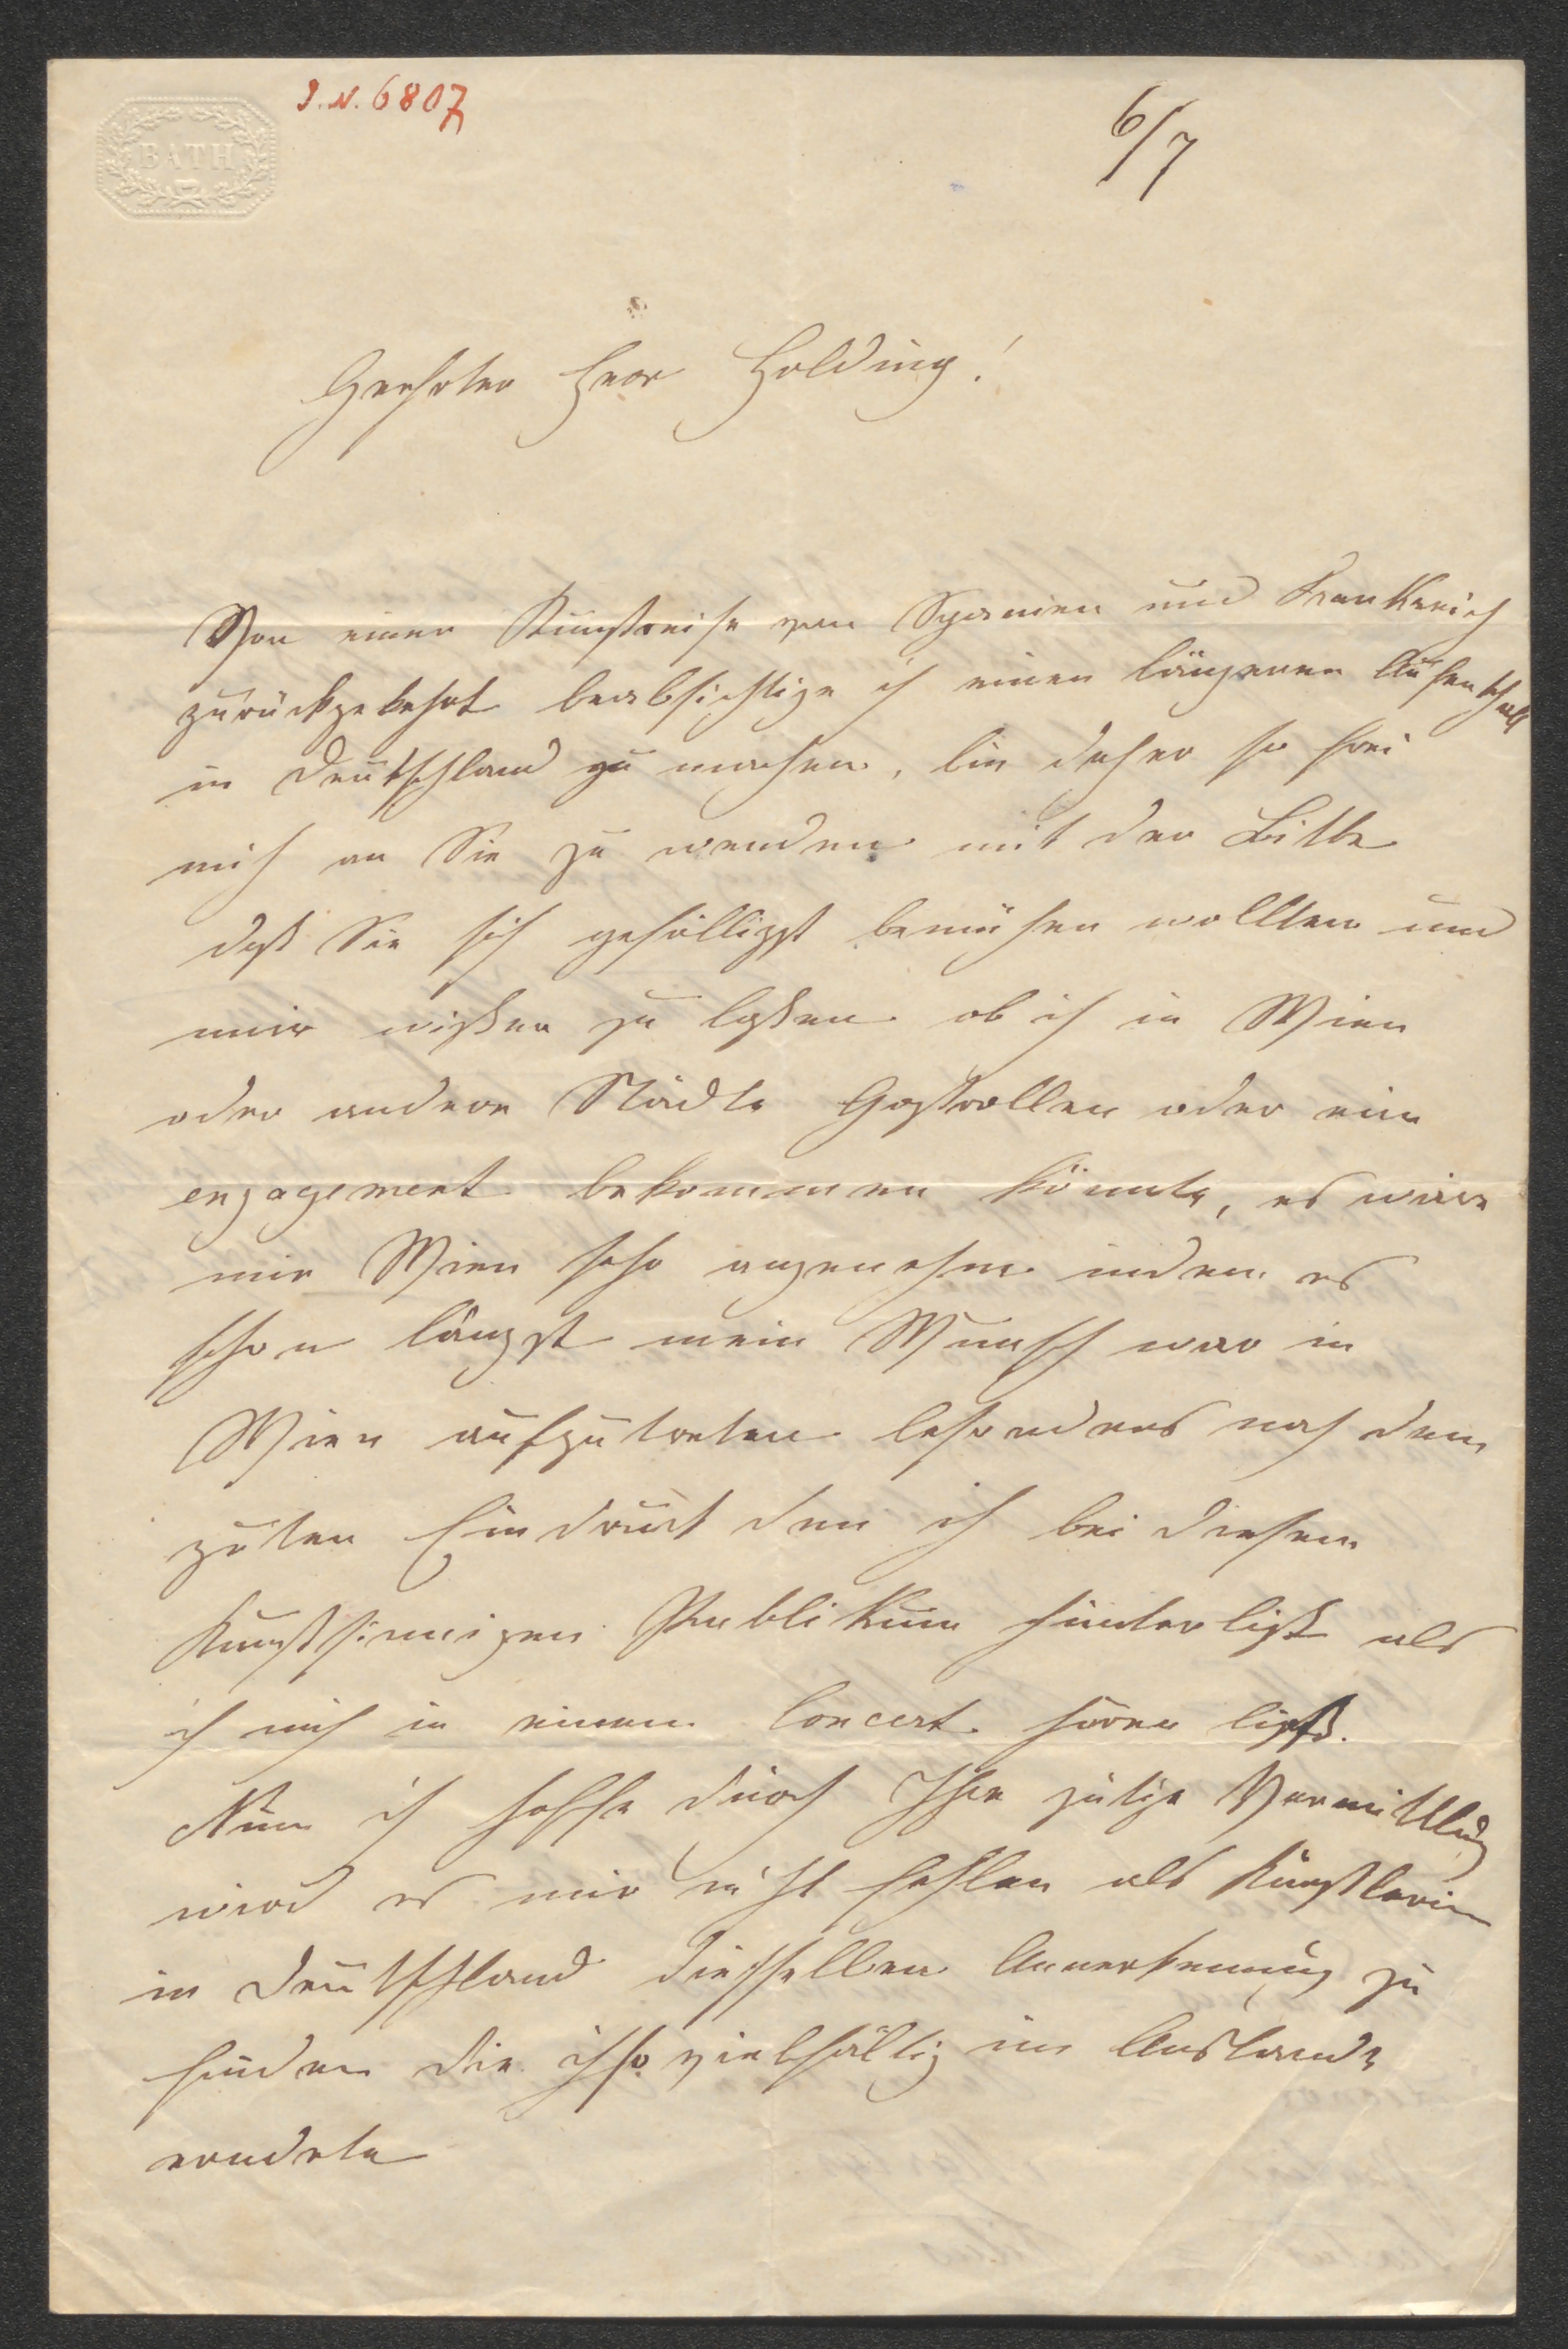 I.N. 6807
BATH
6/7
Geehrter Herr Holding!
Von einer Kunstreise von Spanien und Frankreich
zurückgekehrt beabsichtige ich einen längeren Aufenthalt
in Deutschland zu machen, bin daher so frei
mich an Sie zu wenden mit der Bitte
daß Sie sich gefälligst bemühen wollten und
mir wißen zu laßen ob ich in Wien
oder andere Städte Gastrollen oder ein
engagement bekommen könnte, es wäre
mir Wien sehr angenehm indem es
schon längst mein Wunsch war in
Wien aufzutreten besonders nach dem
guten Eindruck den ich bei diesem
Kunstsinnigen Publikum hinterließ als
ich mich in einem Concert hören ließ.
Nun ich hoffe durch Ihre gütige Vermittlung
wird es mir nicht fehlen als Künstlerin
in Deutschland dieselben Anerkennung zu
finden die ich so vielfältig im Auslande
erndete